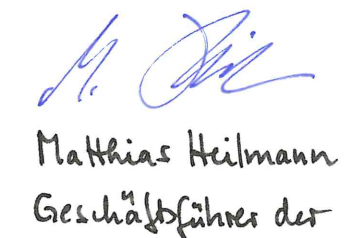 M. Heil
Matthias Heilmann
Geschäftsführer der